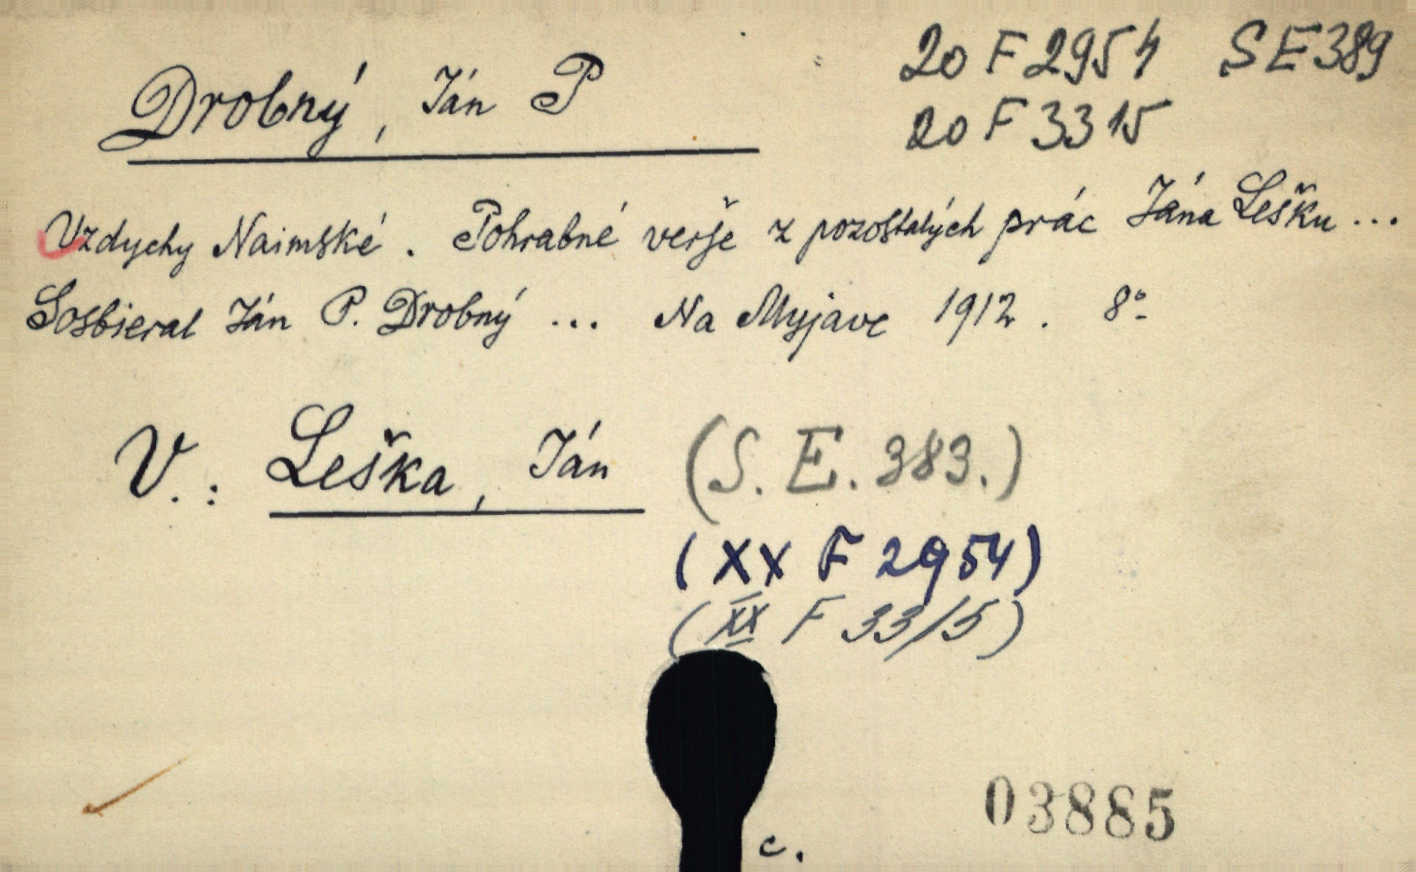 20 F 2954 SE 389
Drobný, Ján P
20 F 3315
Vzdychy Naimské. Pohrabné verše z pozostalých prác Jána Lešku ...
Sosbieral Ján P. Drobný ... Na Myjave 1912. 8°
V.: Leška, Ján (S. E. 383.)
(XX F 2954)
(XX F 33/5)
03885
c.